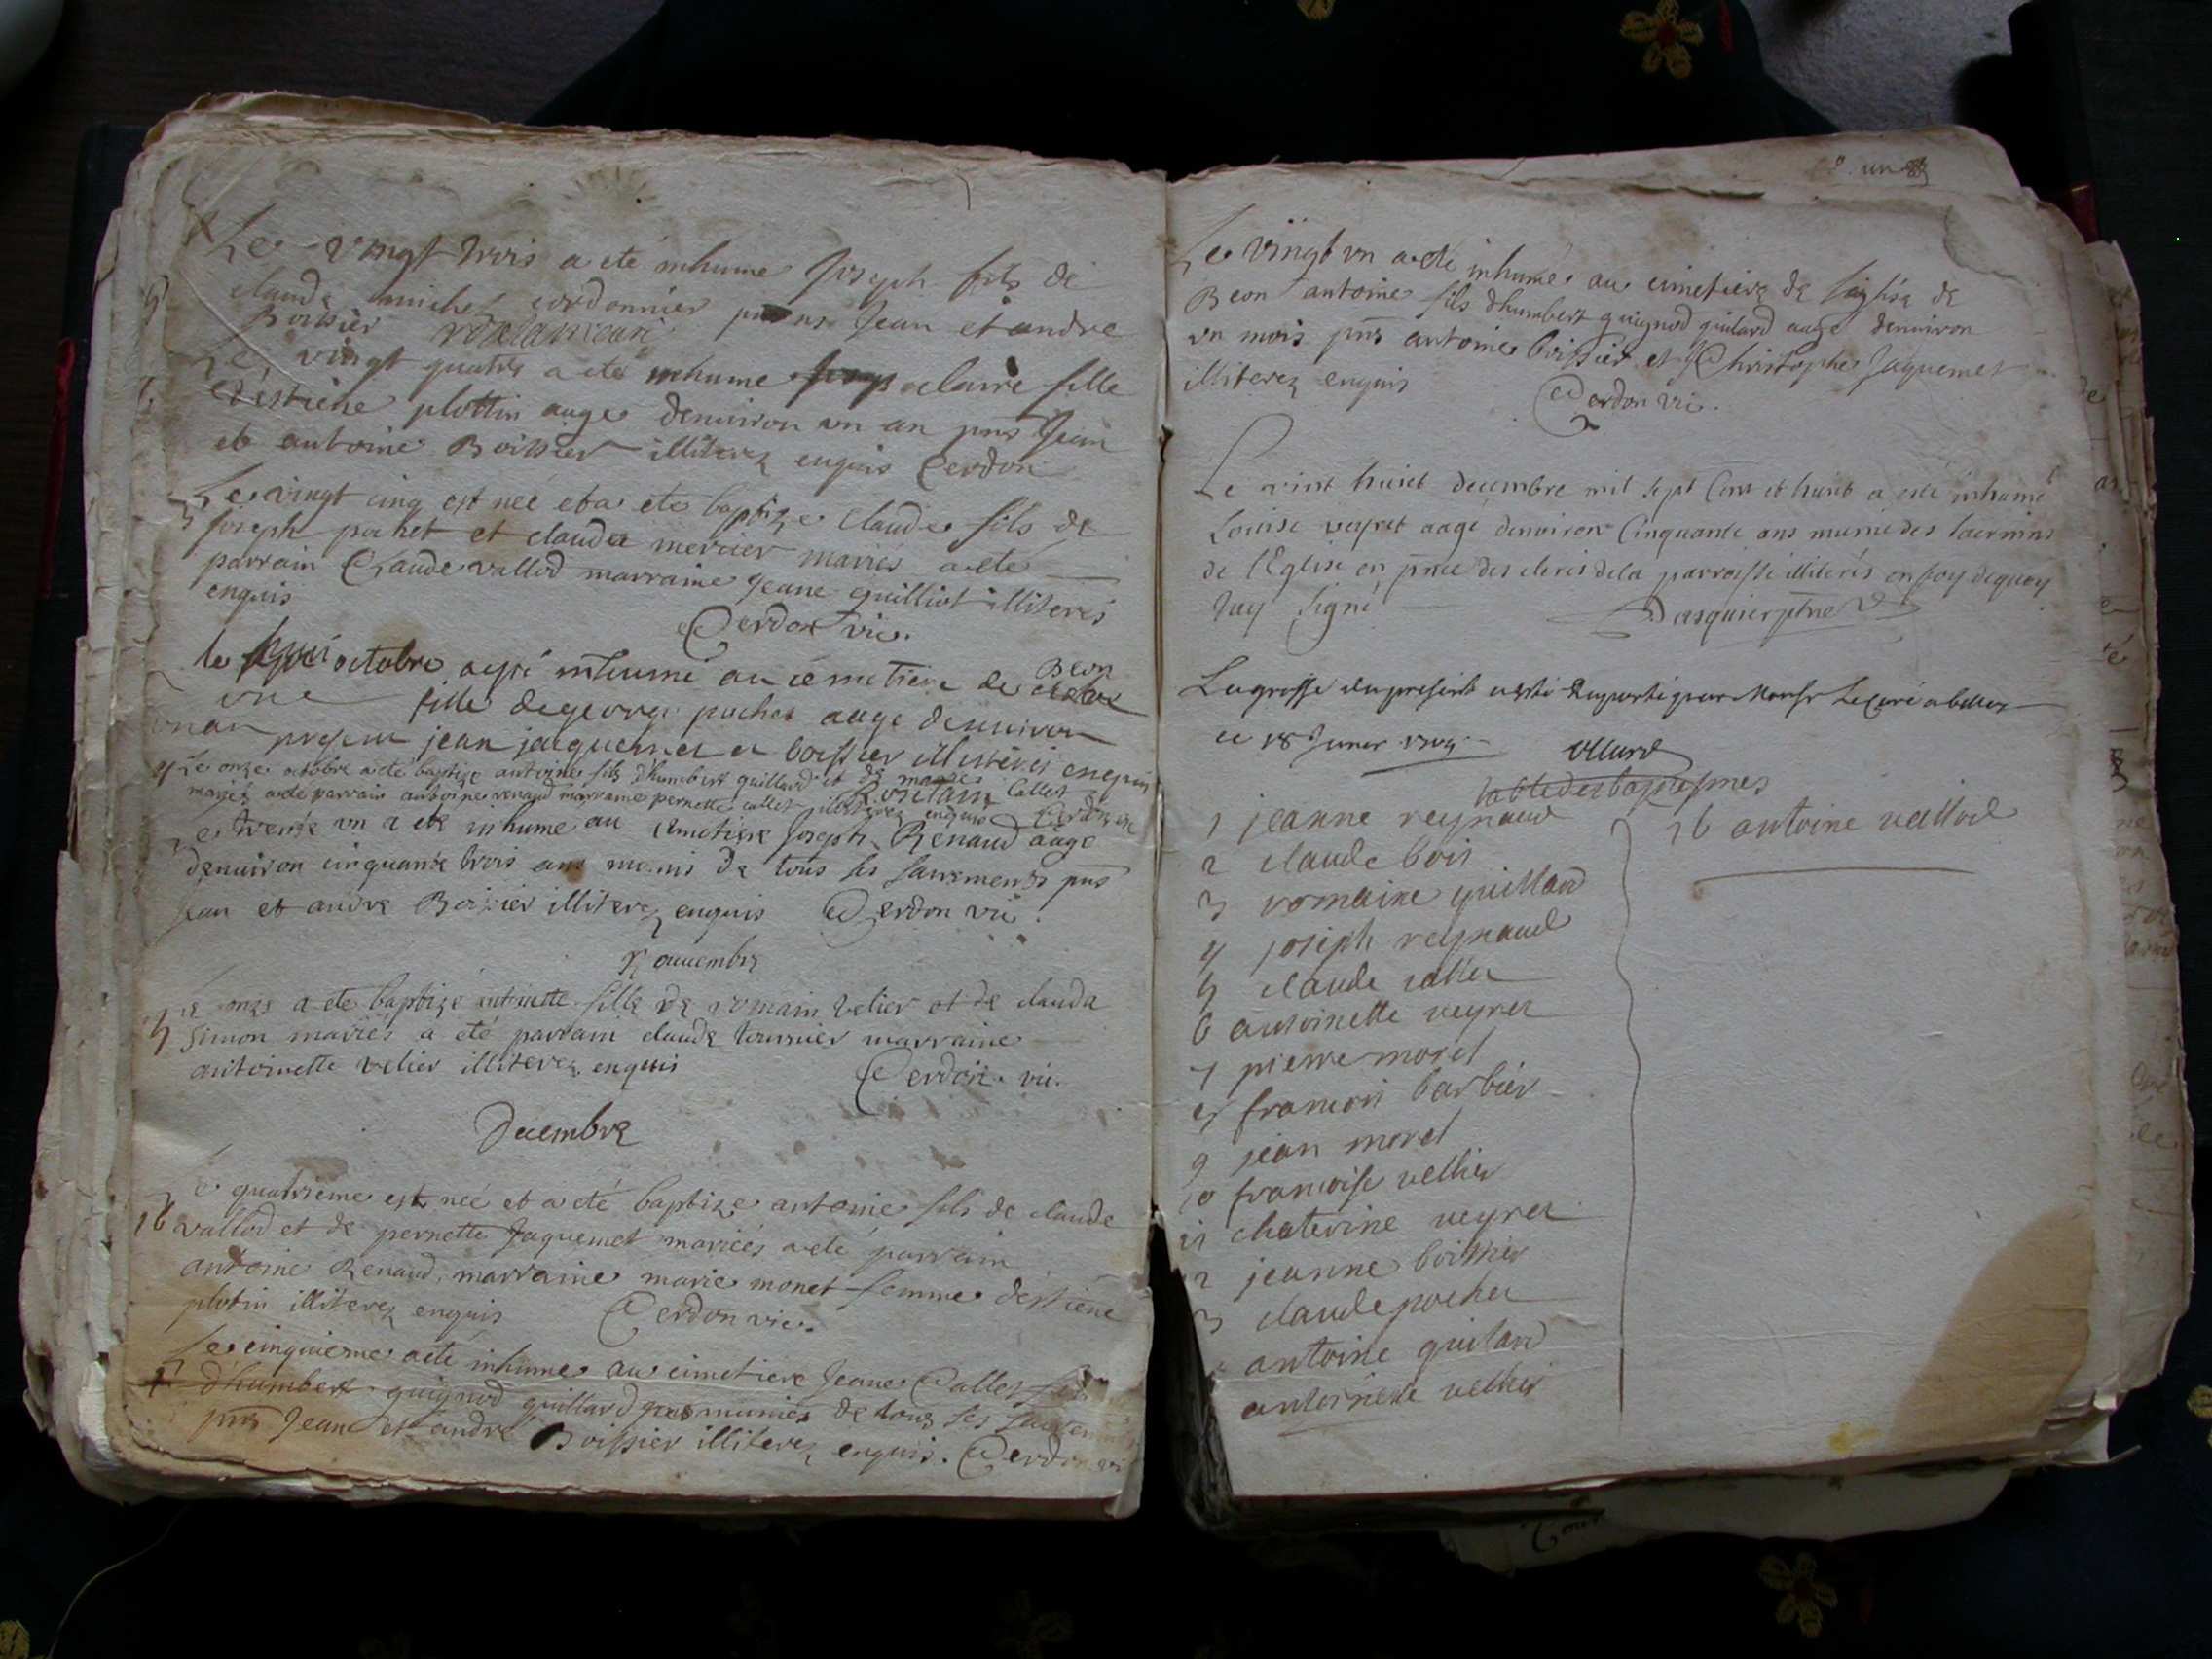 Le vingt trois a eté inhumé Joseph fils de
claude michel cordonnier Jean et andre
Boissier
Le vingt quatre a eté inhume claire fille
d'estiene plottin auge denuiron un an pns Jean
et antoine Boissier illiterez enquis Cerdon
Le vingt cinq est neé et a ete baptize claude fils de
joseph pochet et clauda mercier mariés a eté
parrain Claude vallod marraine Jeane guilliot illiterés
enquis
Cerdon vic.
le octobre inhumé au cemetiere de Beon
une fille de george pochet auge denuiron
un an present jean jacquemet et boissier illiterés enquis
Le onze octobre a eté baptize antoine fils d'humbert guillard et de Callet
mariés a eté parrain antoine renaud marraine pernette callet illiterez enquis Cerdon vic
Le trente un a eté inhume au cemetiere Joseph Renaud auge
denuiron cinquante trois ans muni de tous ses sacrements pns
Jean et andre Boissier illiterez enquis Cerdon vic.
Nouembre
Le onze a eté baptizé antoinette fille de romain velier et de clauda
Simon mariés a été parrain claude tournier marraine
antoinette velier illiterez enquis
Cerdon. vic.
Decembre
Le quatrieme est neé et a eté baptize antoine fils de claude
16 vallod et de pernette Jaquemet mariés a eté parrain
antoine Renaud, marraine marie monet femme d'estiene
plotin illiterez enquis Cerdon vic.
Le cinquieme a eté inhume au cimetiere Jeane Callet
d'humbert guignod guillard munie de tous ses sacrements
pns Jean et andre Boissier illiterez enquis. Cerdon vi
Le vingt un a eté inhumé au cimetiere de l'eglise de
Beon antoine fils d'humbert guignod guilard auge denuiron
un mois pns antoine boissier et Christophe Jaquemet
illiterez enquis
Cerdon vic.
Le vint huict decembre mil sept Cent et huict a esté inhumé
Louise veyret aagé denuiron Cinquante ans munie des sacremns
de l'Eglise en pnce des clercs de la parroisse illiterés en foy de quoy
Jay signé
Dasquier ptre
La grosse du present a esté Raporté par Monsr Le Curé a belley
ce 18 Janer 1709
table des baptesmes
1 jeanne reynaud
2 claude bois
3 romaine guillard
4 joseph reynaud
5 claude callet
6 antoinette veyret
7 pierre morel
8 francois barbier
9 jean morel
10 francoise vellier
11 chaterine veyret
2 jeanne boissier
3 claude pochet
antoine guilard
antoinette vellier
16 antoine vallod